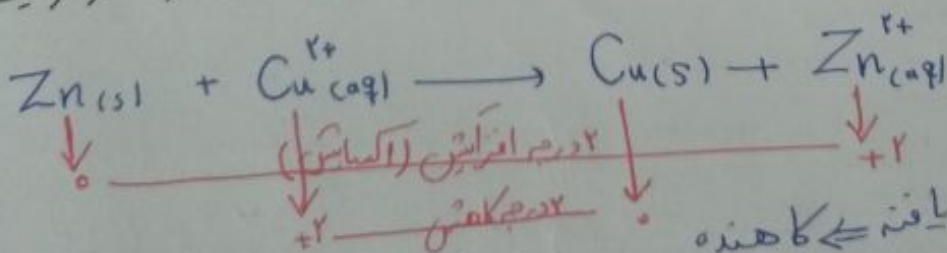 Zn(s) + Cu²⁺(aq) ⟶ Cu(s) + Zn²⁺(aq)
۰ ۲ درجه افزایش (اکسایش) +۲
+۲ ۲ درجه کاهش ۰
یافته ⇐ کاهنده